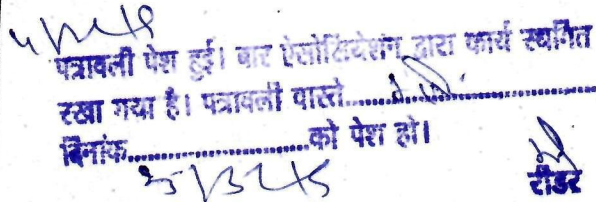 पत्रावली पेश हुई। बार ऐसोसियेशन द्वारा कार्य स्थगित
रखा गया है। पत्रावली वास्ते..............................
दिनांक..............................को पेश हो।
रीडर